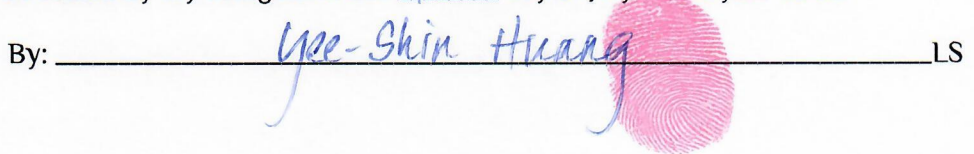 By: Yee-Shin Huang LS